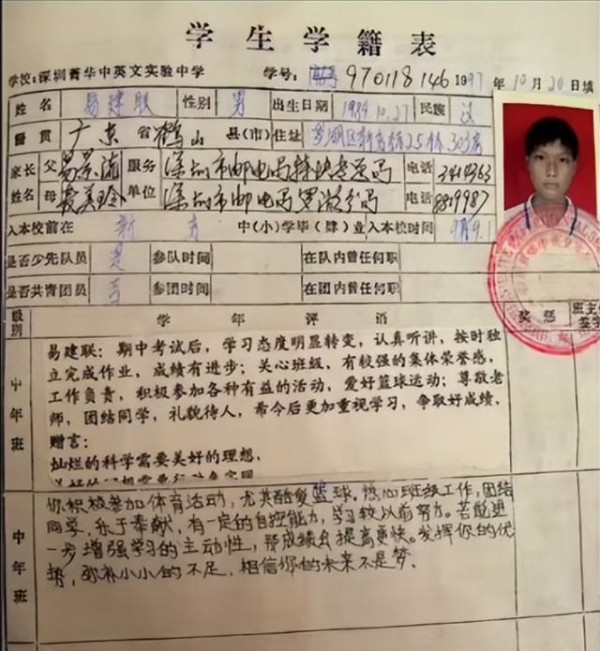 学生学籍表
学校：深圳菁华中英文实验中学 学号：970118146 1997年10月20日填
姓名 易建联 性别 男 出生日期 1984.10.27 民族 汉
籍贯 广东省鹤山县（市）住址 罗湖区新秀村25栋303房
家长 父 易景流 服务 深圳市邮电局 电话 3410363
姓名 母 麦美玲 单位 深圳市邮电局罗湖分局 电话 8819987
入本校前在 新秀 中（小）学毕（肄）业入本校时间
是否少先队员 是 参队时间 在队内曾任何职
是否共青团员 否 参团时间 在团内曾任何职
级别 学年评语 奖惩 班主任签字
中年班
易建联：期中考试后，学习态度明显转变，认真听讲，按时独
立完成作业，成绩有进步；关心班级，有较强的集体荣誉感，
工作负责，积极参加各种有益的活动，爱好篮球运动；尊敬老
师，团结同学，礼貌待人，希今后更加重视学习，争取好成绩。
赠言：
灿烂的科学需要美好的理想，
中年班
你积极参加体育活动，尤其酷爱篮球。热心班级工作，团结
同学，乐于奉献，有一定的自控能力，学习较以前努力。若能进
一步增强学习的主动性，那成绩会提高更快。发挥你的优
势，弥补小小的不足，相信你的未来不是梦。